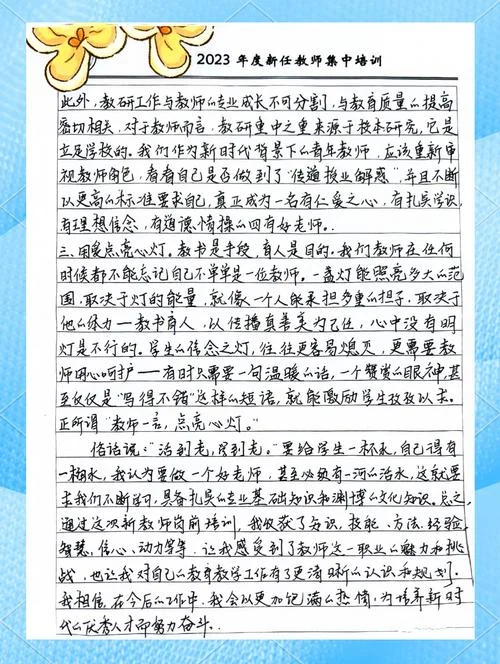 2023 年度新任教师集中培训
此外,教研工作与教师的专业成长不可分割,与教育质量的提高
密切相关,对于教师而言,教研重中之重来源于校本研究,它是
立足学校的。我们作为新时代背景下的青年教师,应该重新审
视教师角色,看看自己是否做到了“传道授业解惑”,并且不断
以更高的标准要求自己,真正成为一名有仁爱之心,有扎实学识,
有理想信念,有道德情操的四有好老师。
三、用爱点亮心灯。教书是手段,育人是目的。我们教师在任何
时候都不能忘记自己不单单是一位教师。一盏灯能照亮多大的范
围,取决于灯的能量,就像一个人能承担多重的担子,取决于
他的体力一教书育人,以传播真善美为己任,心中没有明
灯是不行的。学生的信念之灯,往往更容易熄灭,更需要教
师用心呵护——有时只需要一句温暖的话,一个赞赏的眼神,甚
至仅仅是“写得不错”这样的短语,就能激励学生孜孜以求。
正所谓“教师一言,点亮心灯”。
俗话说:“活到老,学到老。”要给学生一杯水,自己得有
一桶水,我认为要做一个好老师,甚至必须有一河的活水,这就要
求我们不断学习,具备扎实的专业基础知识和渊博的文化知识。总之,
通过这次新教师岗前培训,我收获了知识,技能、方法、经验、
智慧,信心、动力等等,让我感受到了教师这一职业的魅力和挑
战,也让我对自己的教育教学工作有了更清晰的认识和规划;
我相信,在今后的工作中,我会以更加饱满的热情,为培养新时
代的优秀人才而努力奋斗。